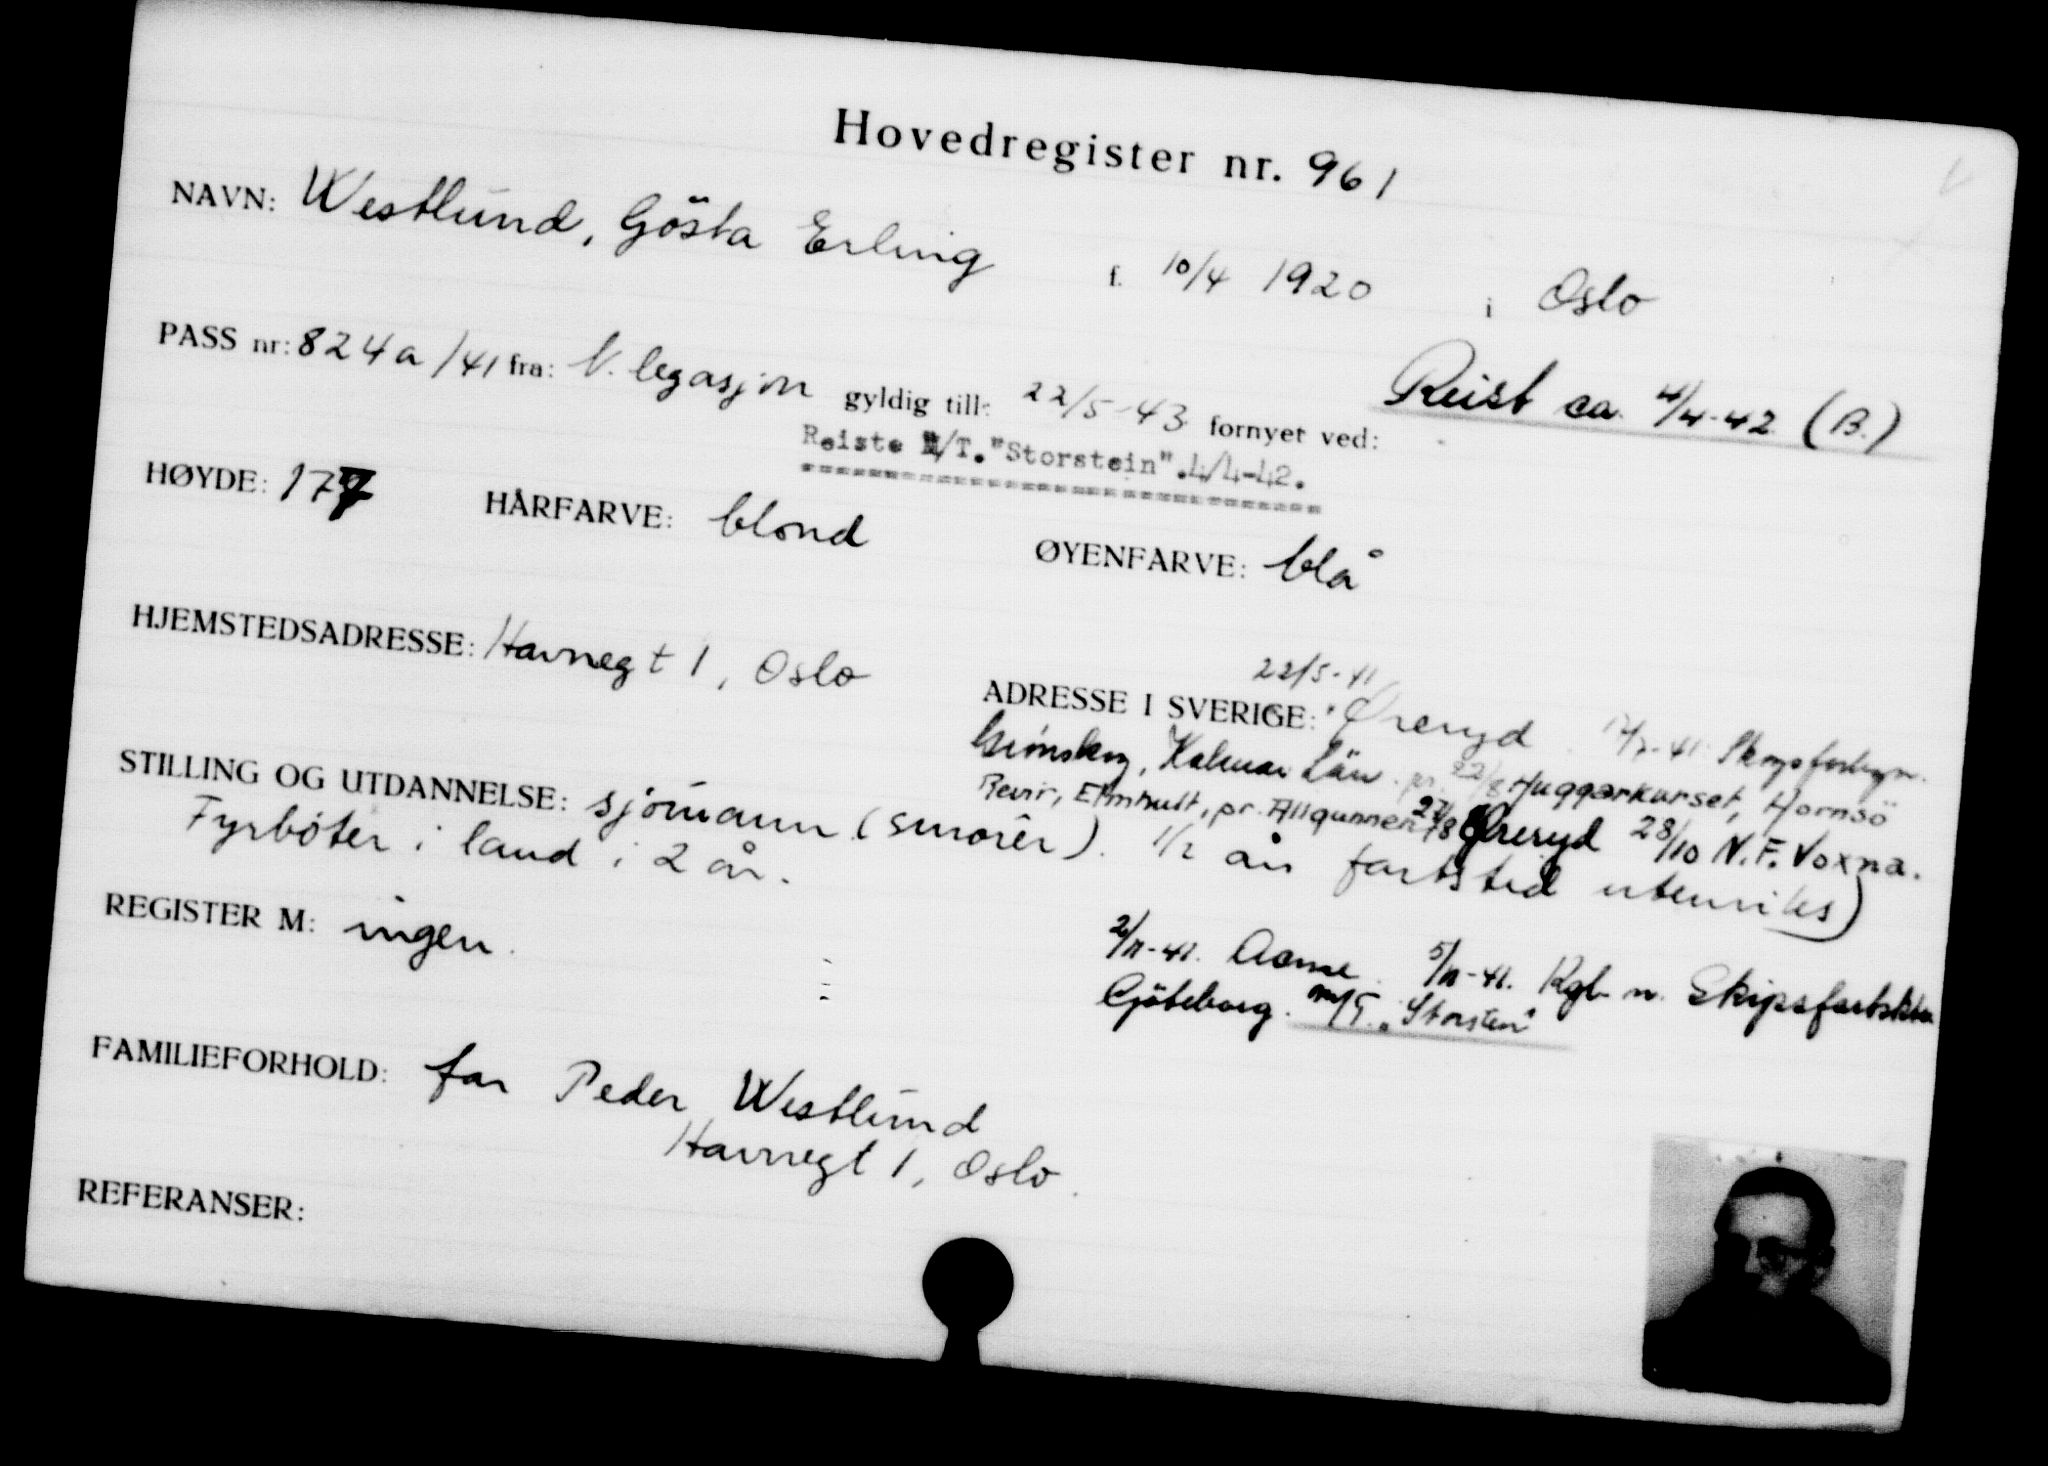 Hovedregister nr. 961
NAVN: Westlund, Gösta Erling f. 10/4 1920 i Oslo
PASS nr: 824a/41 fra: N. legasjon gyldig till: 22/5-43 fornyet ved:
Reist ca. 4/4-42 (B.)
Reiste M/T. "Storstein".4/4-42.
HØYDE: 177 HÅRFARVE: blond ØYENFARVE: blå
HJEMSTEDSADRESSE: Havnegt 1, Oslo
22/5-41
ADRESSE I SVERIGE: Øreryd
Kalmar Län. pr. 22/8 Huggarkurset, Hornsö
Revir, pr. Allgunnen 27/8 Øreryd 28/10 N.F. Voxna.
STILLING OG UTDANNELSE: sjömann (smörer). 1/2 års fartstid utenriks)
Fyrböter i land i 2 år.
REGISTER M: ingen.
2/11-41. 5/11-41. Kgl. n. Skipsfartsktr.
Göteborg. M/T. "Storsten"
FAMILIEFORHOLD: far Peder Westlund
Havnegt 1, Oslo.
REFERANSER: